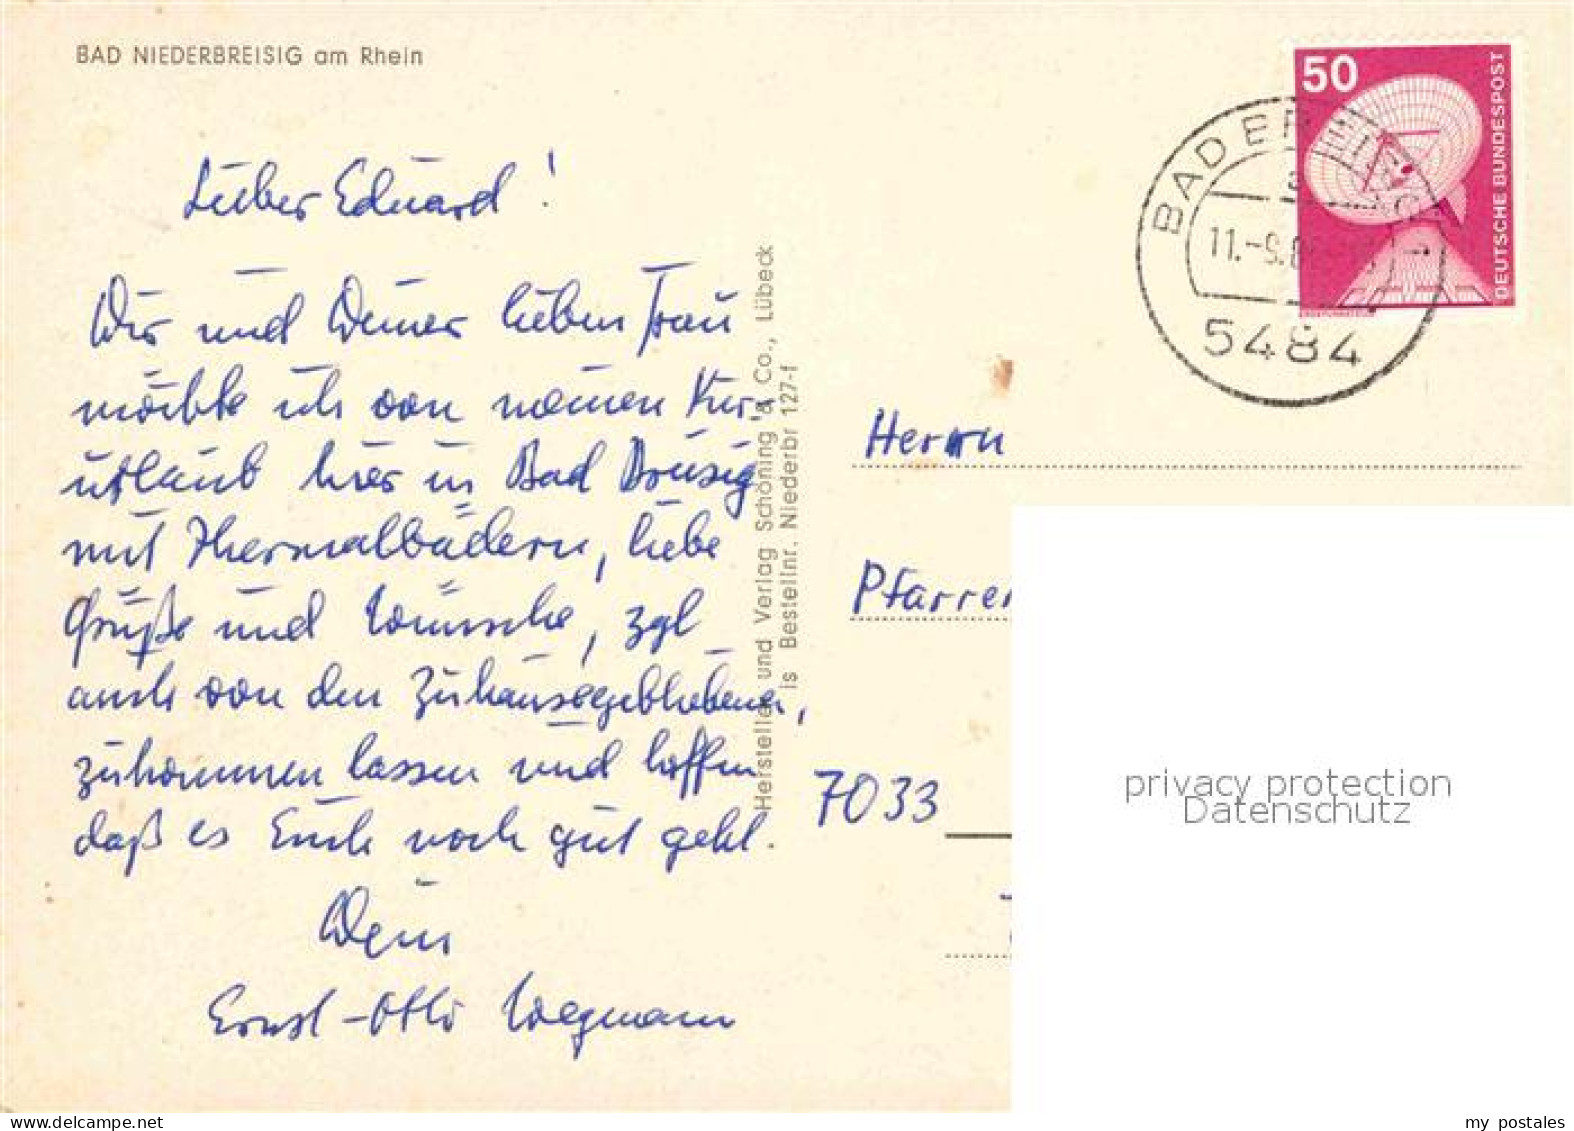 BAD NIEDERBREISIG am Rhein
50
DEUTSCHE BUNDESPOST
BAD
11.-9.
5484
Lieber Eduard!
Dir und Deiner lieben Frau
möchte ich von meinem Kur-
urlaub hier in Bad Breisig
mit Thermalbädern, liebe
Grüße und Wünsche, zgl
auch von den Zuhausegebliebenen,
zukommen lassen und hoffen
daß es Euch noch gut geht.
Dein
Ernst-Otto Wegmann
Hersteller und Verlag Schöning & Co., Lübeck
is Bestellnr. Niederbr 127-f
Herrn
Pfarrer
7033
privacy protection
Datenschutz
my postales